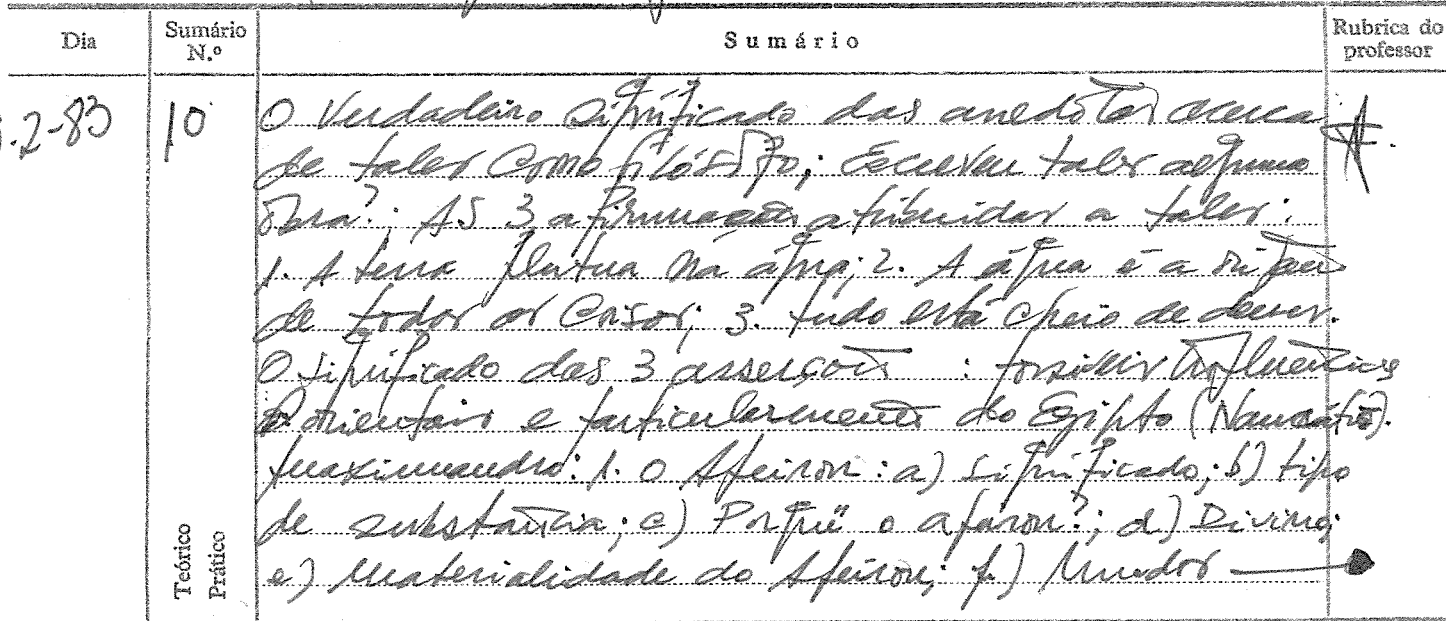 Dia
Sumário N.º
Sumário
Rubrica do professor
.2-83
10
O Verdadeiro significado das anedotas acerca
de Tales como filósofo; Escreveu Tales alguma
obra?; As 3 afirmações atribuidas a Tales:
1. A terra flutua na água; 2. A água é a origem
de todas as coisas; 3. tudo está cheio de deuses.
O significado das 3 asserções : possíveis influências
orientais e particularmente do Egipto (Naucratis).
Anaximandro: 1. O Apeiron: a) significado; b) tipo
de substância; c) Porquê o apeiron?; d) Divino;
e) Materialidade do Apeiron; f) Mundos
Teórico
Prático